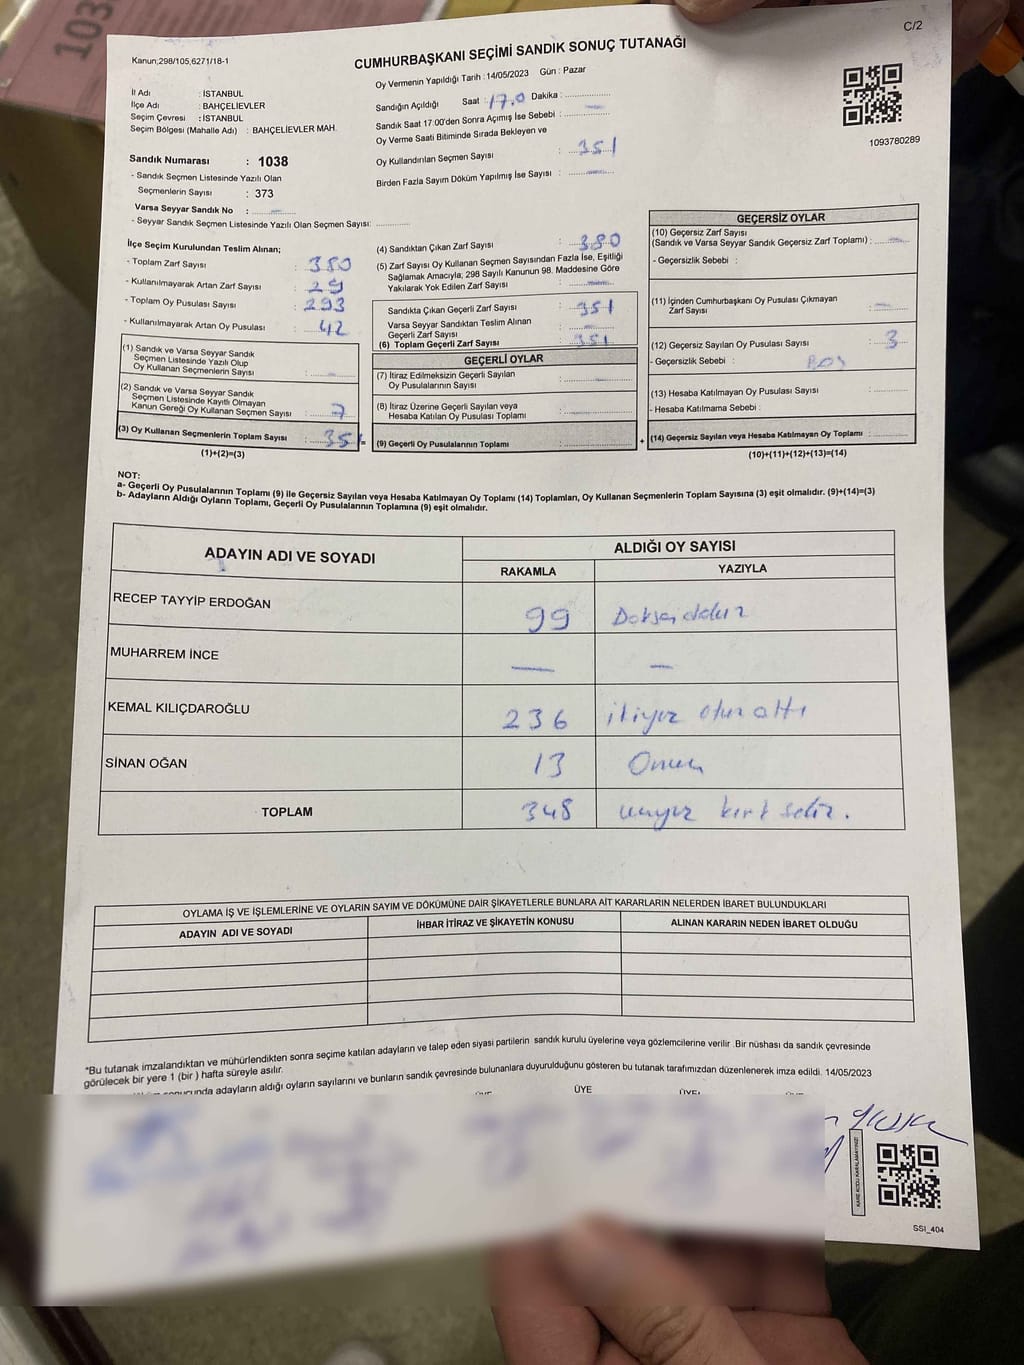 C/2
103
Kanun,298/105,6271/18-1
CUMHURBAŞKANI SEÇİMİ SANDIK SONUÇ TUTANAĞI
İl Adı : İSTANBUL
İlçe Adı : BAHÇELİEVLER
Seçim Çevresi : İSTANBUL
Seçim Bölgesi (Mahalle Adı) : BAHÇELİEVLER MAH.
Sandık Numarası : 1038
- Sandık Seçmen Listesinde Yazılı Olan
Seçmenlerin Sayısı : 373
Varsa Seyyar Sandık No : -
- Seyyar Sandık Seçmen Listesinde Yazılı Olan Seçmen Sayısı:
Oy Vermenin Yapıldığı Tarih : 14/05/2023 Gün : Pazar
Sandığın Açıldığı Saat : 17.0 Dakika :
Sandık Saat 17:00'den Sonra Açımış İse Sebebi : -
Oy Verme Saati Bitiminde Sırada Bekleyen ve
Oy Kullandırılan Seçmen Sayısı : 351
Birden Fazla Sayım Döküm Yapılmış İse Sayısı : -
1093780289
İlçe Seçim Kurulundan Teslim Alınan;
- Toplam Zarf Sayısı : 380
- Kullanılmayarak Artan Zarf Sayısı : 29
- Toplam Oy Pusulası Sayısı : 293
- Kullanılmayarak Artan Oy Pusulası : 42
(1) Sandık ve Varsa Seyyar Sandık
Seçmen Listesinde Yazılı Olup
Oy Kullanan Seçmenlerin Sayısı : -
(2) Sandık ve Varsa Seyyar Sandık
Seçmen Listesinde Kayıtlı Olmayan
Kanun Gereği Oy Kullanan Seçmen Sayısı : 7
(3) Oy Kullanan Seçmenlerin Toplam Sayısı : 351 =
(1)+(2)=(3)
(4) Sandıktan Çıkan Zarf Sayısı : 380
(5) Zarf Sayısı Oy Kullanan Seçmen Sayısından Fazla İse, Eşitliği
Sağlamak Amacıyla; 298 Sayılı Kanunun 98. Maddesine Göre
Yakılarak Yok Edilen Zarf Sayısı : -
Sandıkta Çıkan Geçerli Zarf Sayısı : 351
Varsa Seyyar Sandıktan Teslim Alınan
Geçerli Zarf Sayısı : -
(6) Toplam Geçerli Zarf Sayısı : 351
GEÇERLİ OYLAR
(7) İtiraz Edilmeksizin Geçerli Sayılan
Oy Pusulalarının Sayısı : -
(8) İtiraz Üzerine Geçerli Sayılan veya
Hesaba Katılan Oy Pusulası Toplamı : -
(9) Geçerli Oy Pusulalarının Toplamı : +
GEÇERSİZ OYLAR
(10) Geçersiz Zarf Sayısı
(Sandık ve Varsa Seyyar Sandık Geçersiz Zarf Toplamı) : -
- Geçersizlik Sebebi :
(11) İçinden Cumhurbaşkanı Oy Pusulası Çıkmayan
Zarf Sayısı : -
(12) Geçersiz Sayılan Oy Pusulası Sayısı : 3
- Geçersizlik Sebebi : BOŞ
(13) Hesaba Katılmayan Oy Pusulası Sayısı :
- Hesaba Katılmama Sebebi :
(14) Geçersiz Sayılan veya Hesaba Katılmayan Oy Toplamı :
(10)+(11)+(12)+(13)=(14)
NOT:
a- Geçerli Oy Pusulalarının Toplamı (9) ile Geçersiz Sayılan veya Hesaba Katılmayan Oy Toplamı (14) Toplamları, Oy Kullanan Seçmenlerin Toplam Sayısına (3) eşit olmalıdır. (9)+(14)=(3)
b- Adayların Aldığı Oyların Toplamı, Geçerli Oy Pusulalarının Toplamına (9) eşit olmalıdır.
ADAYIN ADI VE SOYADI
ALDIĞI OY SAYISI
RAKAMLA YAZIYLA
RECEP TAYYİP ERDOĞAN 99 Doksandokuz
MUHARREM İNCE - -
KEMAL KILIÇDAROĞLU 236 ikiyüz otuz altı
SİNAN OĞAN 13 Onüç
TOPLAM 348 üçyüz kırk sekiz.
OYLAMA İŞ VE İŞLEMLERİNE VE OYLARIN SAYIM VE DÖKÜMÜNE DAİR ŞİKAYETLERLE BUNLARA AİT KARARLARIN NELERDEN İBARET BULUNDUKLARI
ADAYIN ADI VE SOYADI İHBAR İTİRAZ VE ŞİKAYETİN KONUSU ALINAN KARARIN NEDEN İBARET OLDUĞU
*Bu tutanak imzalandıktan ve mühürlendikten sonra seçime katılan adayların ve talep eden siyasi partilerin sandık kurulu üyelerine veya gözlemcilerine verilir .Bir nüshası da sandık çevresinde
görülecek bir yere 1 (bir ) hafta süreyle asılır.
sonucunda adayların aldığı oyların sayılarını ve bunların sandık çevresinde bulunanlara duyurulduğunu gösteren bu tutanak tarafımızdan düzenlenerek imza edildi. 14/05/2023
ÜYE ÜYE ÜYE ÜYE
KARE KODU KARALAMAYINIZ!
SSI_404